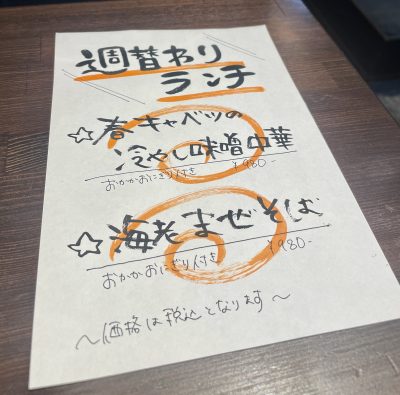 週替わり
ランチ
☆春キャベツの
冷やし味噌中華
おかかおにぎり付き ¥980-
☆海老まぜそば
おかかおにぎり付き ¥980-
〜価格は税込となります〜